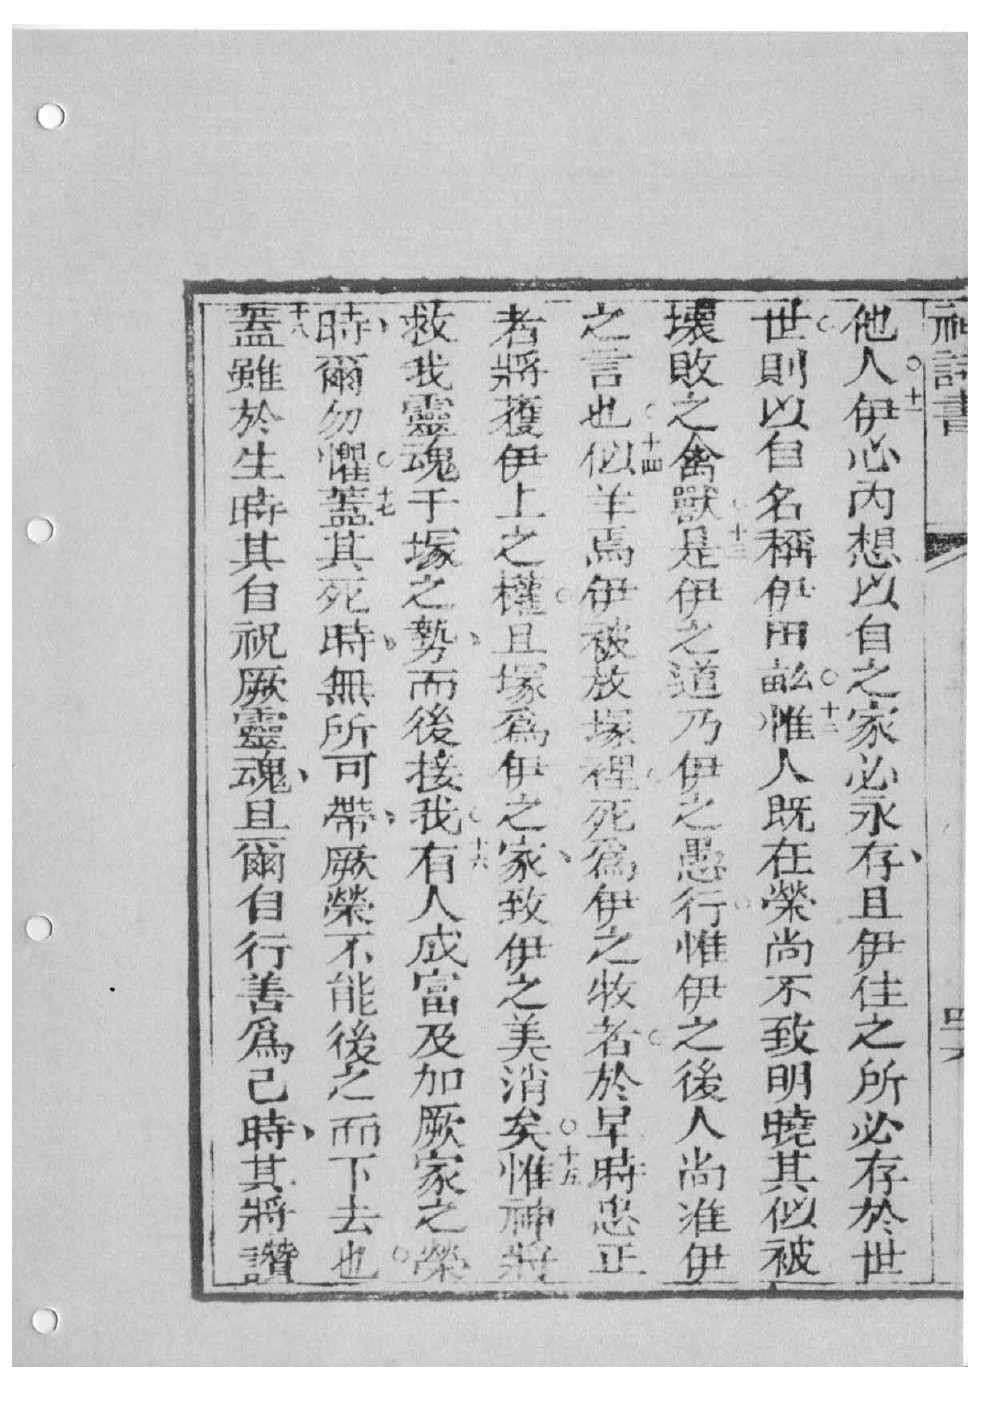 神詩書
他人○十一伊必內想以自之家必永存、且伊住之所必存於世
世○則以自名稱伊田畝○十二惟人既在榮尚不致明曉其似被
壞敗之禽獸○十三是伊之道乃伊之愚行○惟伊之後人尚準伊
之言也○十四似羊焉伊被放塚裡○死爲伊之牧者○於早時忠正
者將獲伊上之權○且塚爲伊之家、致伊之美消矣○十五惟神將
救我靈魂于塚之勢、而後接我○十六有人成富及加厥家之榮○
時、爾勿懼○十七蓋其死時、無所可帶、厥榮不能後之而下去也
十八蓋雖於生時其自祝厥靈魂、且爾自行善爲己時、其將讚